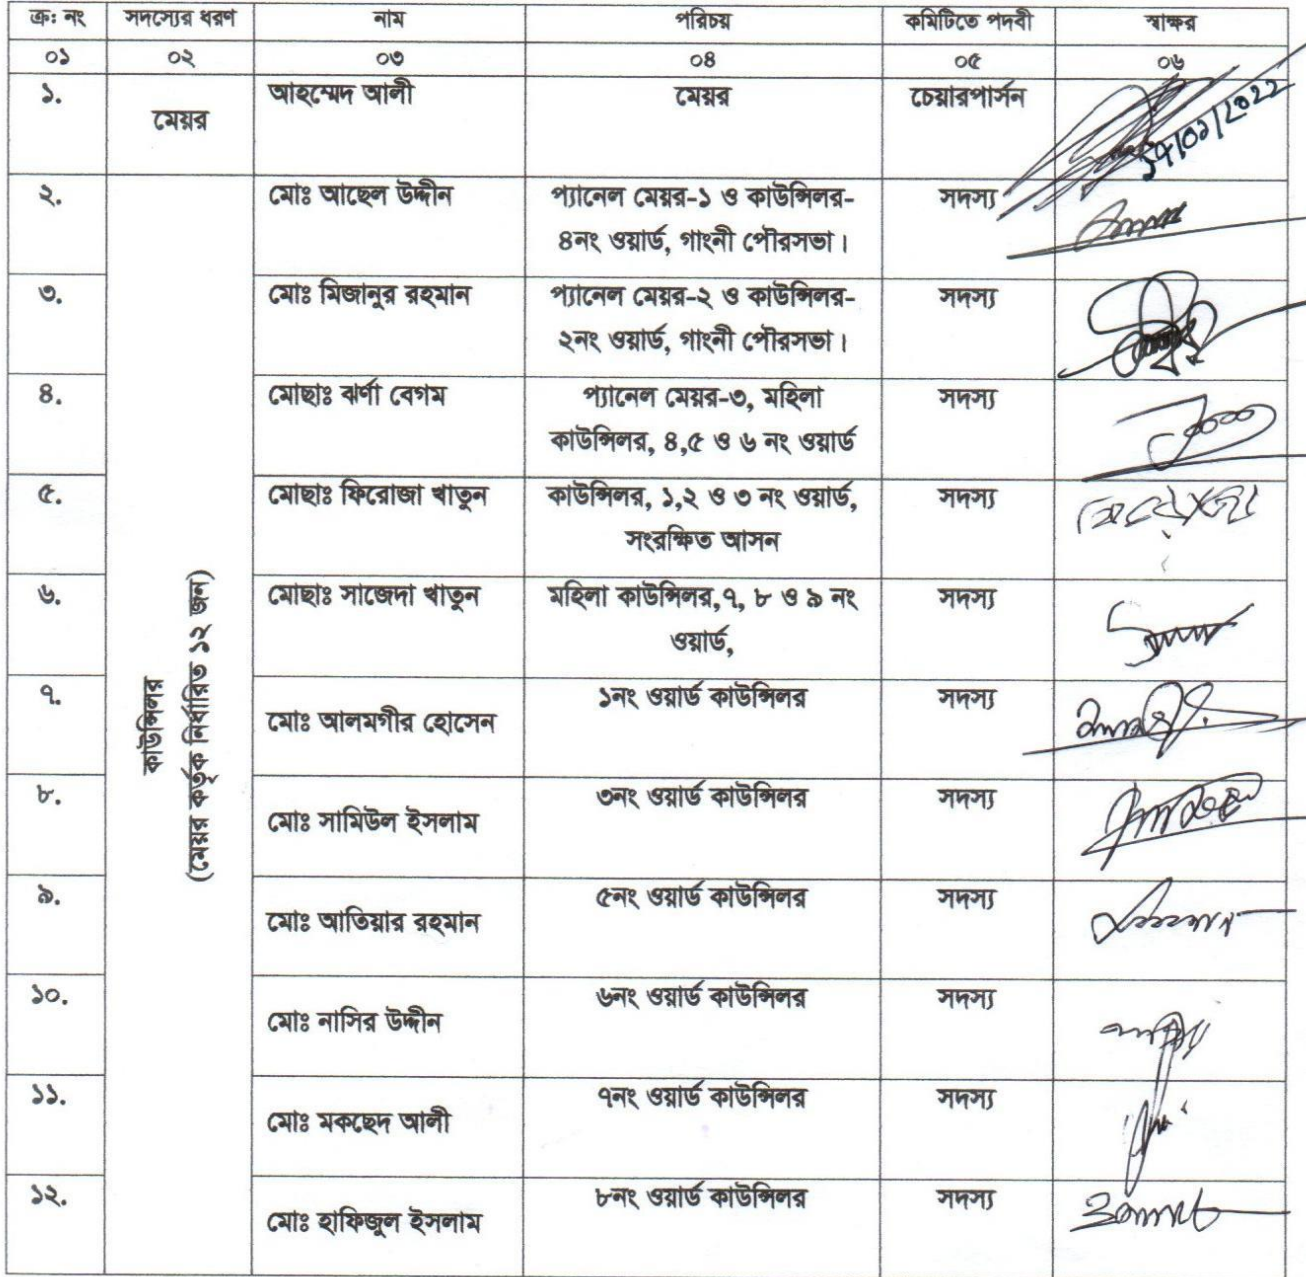 ক্রঃ নং সদস্যের ধরণ নাম পরিচয় কমিটিতে পদবী স্বাক্ষর
০১ ০২ ০৩ ০৪ ০৫ ০৬
১. মেয়র আহম্মেদ আলী মেয়র চেয়ারপার্সন
কাউন্সিলর
(মেয়র কর্তৃক নির্ধারিত ১২ জন)
২. মোঃ আছেল উদ্দীন প্যানেল মেয়র-১ ও কাউন্সিলর- সদস্য
৪নং ওয়ার্ড, গাংনী পৌরসভা।
৩. মোঃ মিজানুর রহমান প্যানেল মেয়র-২ ও কাউন্সিলর- সদস্য
২নং ওয়ার্ড, গাংনী পৌরসভা।
৪. মোছাঃ ঝর্ণা বেগম প্যানেল মেয়র-৩, মহিলা সদস্য
কাউন্সিলর, ৪,৫ ও ৬ নং ওয়ার্ড
৫. মোছাঃ ফিরোজা খাতুন কাউন্সিলর, ১,২ ও ৩ নং ওয়ার্ড, সদস্য
সংরক্ষিত আসন
৬. মোছাঃ সাজেদা খাতুন মহিলা কাউন্সিলর,৭, ৮ ও ৯ নং সদস্য
ওয়ার্ড,
৭. মোঃ আলমগীর হোসেন ১নং ওয়ার্ড কাউন্সিলর সদস্য
৮. মোঃ সামিউল ইসলাম ৩নং ওয়ার্ড কাউন্সিলর সদস্য
৯. মোঃ আতিয়ার রহমান ৫নং ওয়ার্ড কাউন্সিলর সদস্য
১০. মোঃ নাসির উদ্দীন ৬নং ওয়ার্ড কাউন্সিলর সদস্য
১১. মোঃ মকছেদ আলী ৭নং ওয়ার্ড কাউন্সিলর সদস্য
১২. মোঃ হাফিজুল ইসলাম ৮নং ওয়ার্ড কাউন্সিলর সদস্য